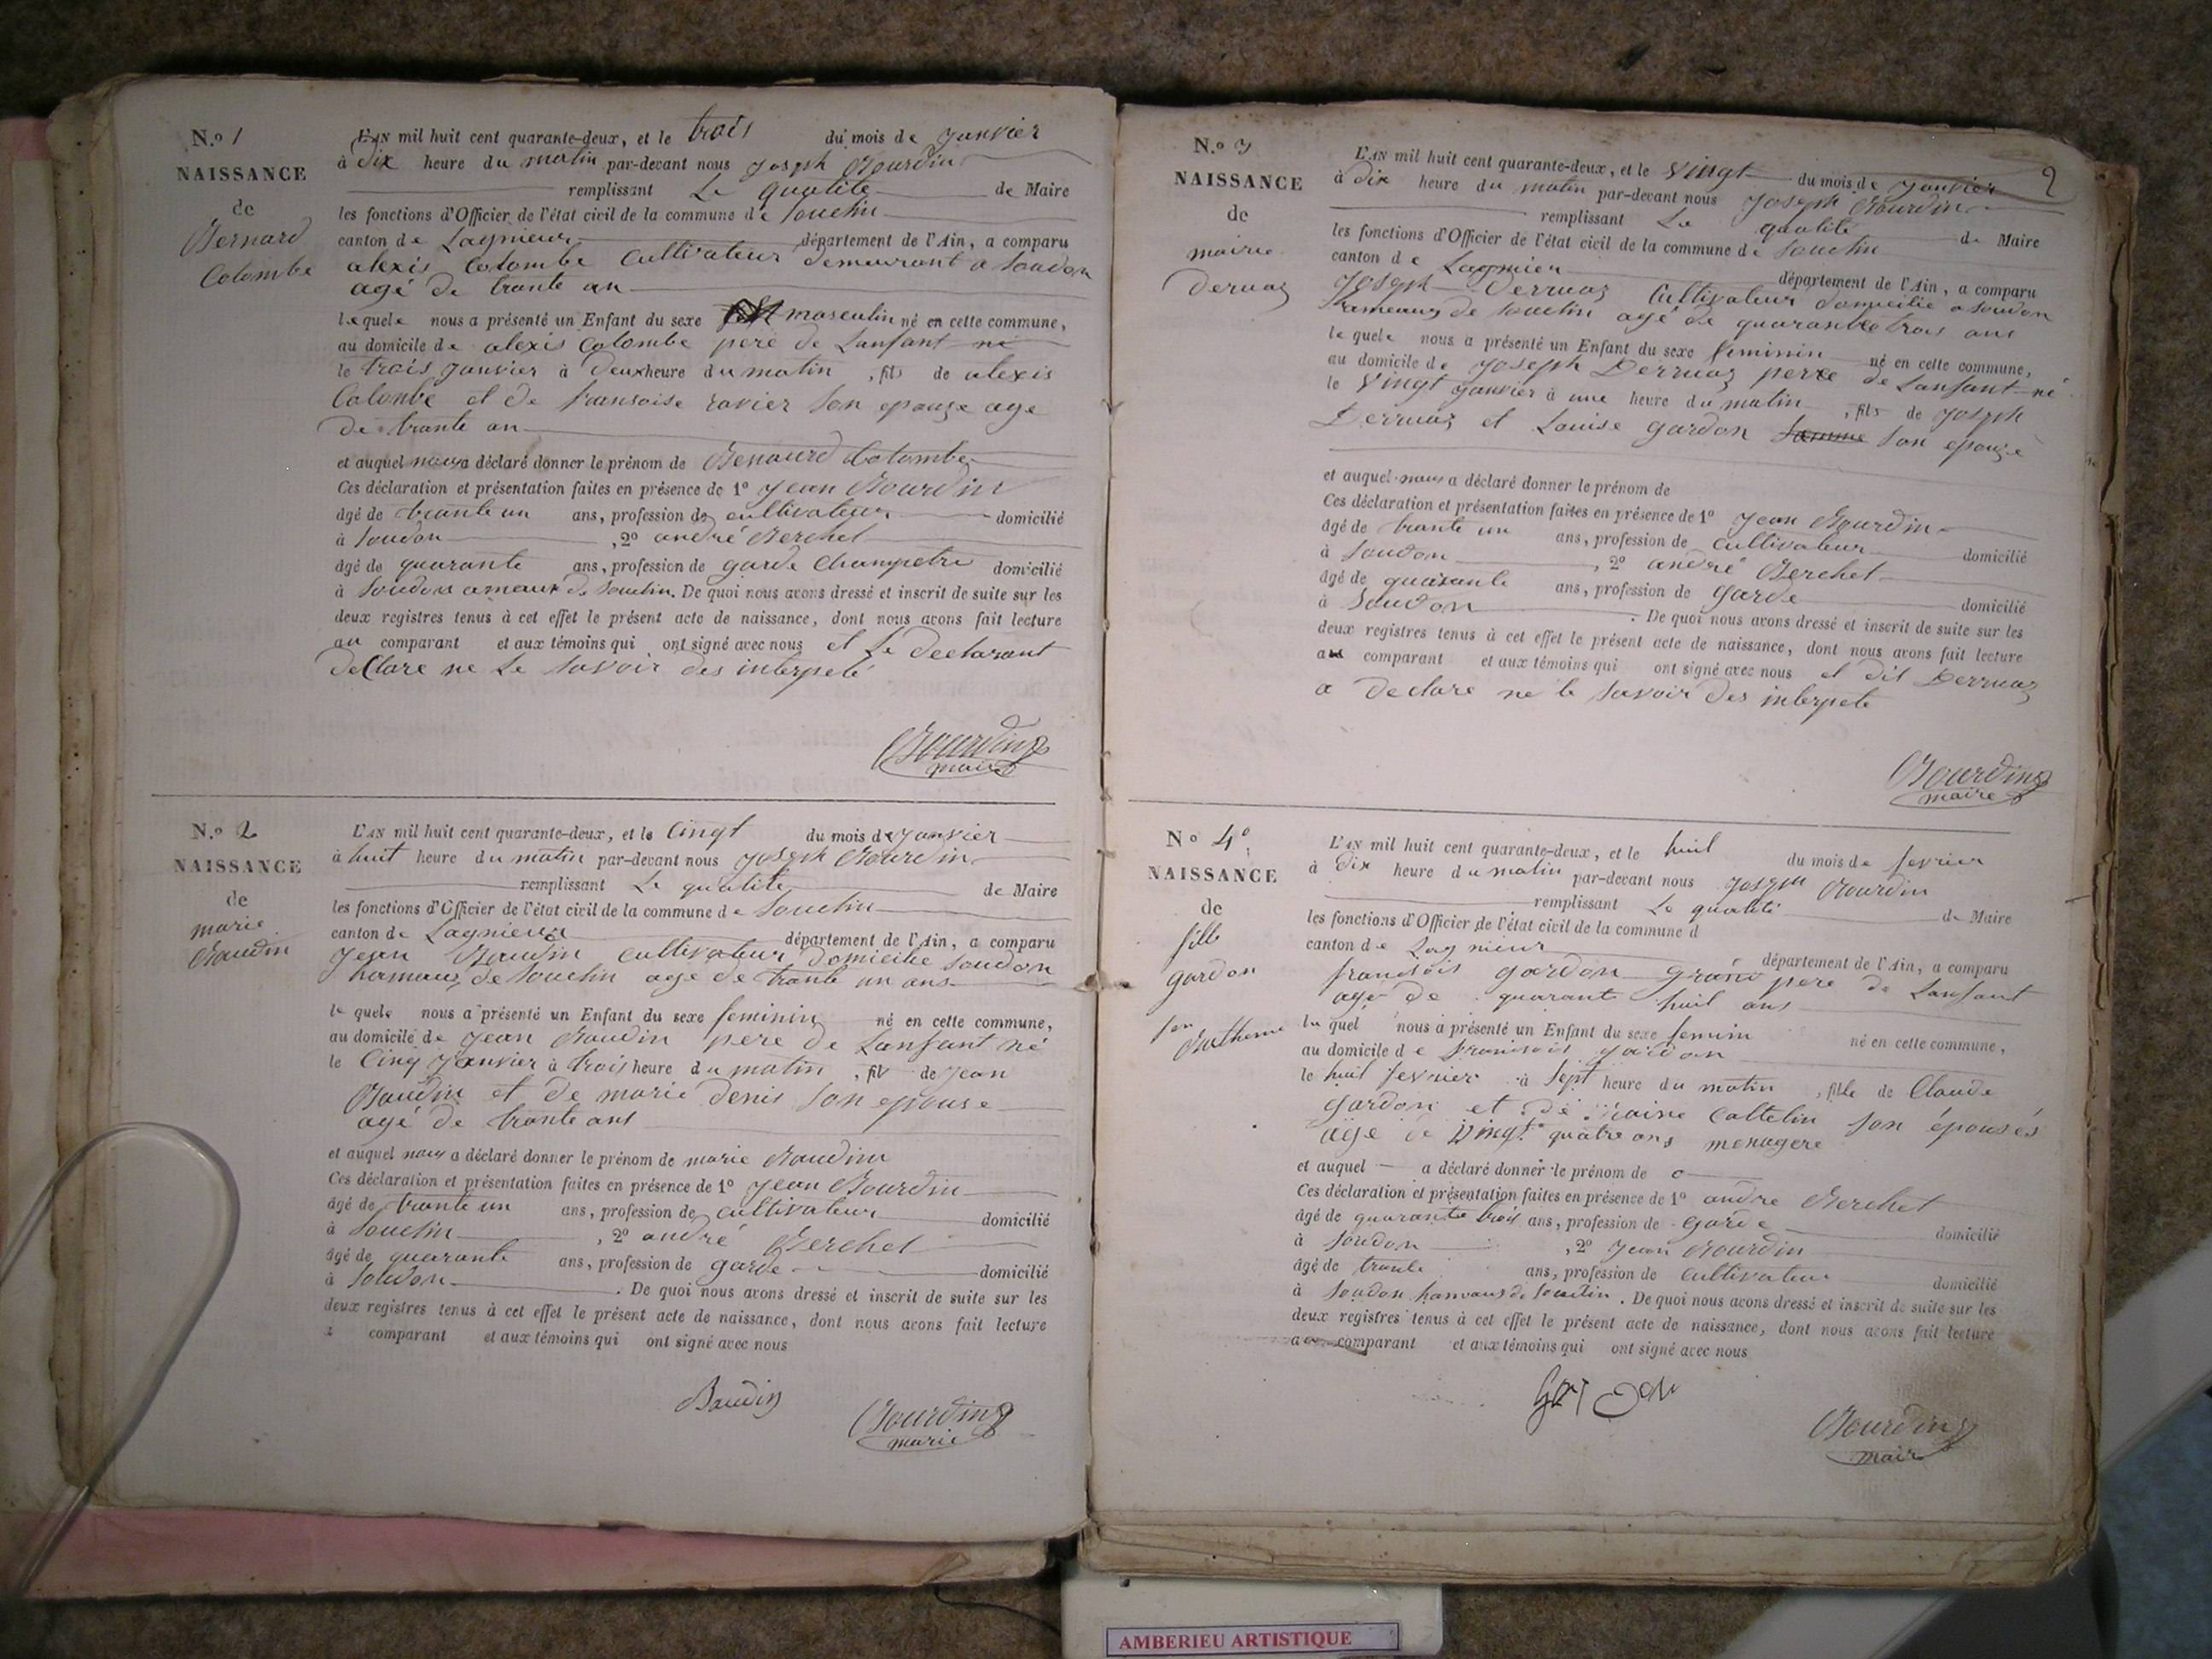 N.º 1
NAISSANCE
de
Bernard
Colombe
L'AN mil huit cent quarante-deux, et le trois du mois de janvier
à dix heure du matin par-devant nous Joseph Bourdin
remplissant Le qualite de Maire
les fonctions d'Officier de l'état civil de la commune de Souclin
canton de Lagnieux département de l'Ain, a comparu
alexis Colombe Cultivateur demeurant a Soudon
agé de trante an
lequele nous a présenté un Enfant du sexe masculin né en cette commune,
au domicile de alexis Colombe pere de Lanfant né
le trois janvier à deux heure du matin , fils de alexis
Colonbe et de fransoise ravier son epouze age
de trante an
et auquel nous a déclaré donner le prénom de Benard Colombe
Ces déclaration et présentation faites en présence de 1º Jean Bourdin
âgé de trante un ans, profession de cultivateur domicilié
à Soudon , 2º andré Berchet
âgé de quarante ans, profession de garde Champetre domicilié
à Soudon ameaux de Souclin. De quoi nous avons dressé et inscrit de suite sur les
deux registres tenus à cet effet le présent acte de naissance, dont nous avons fait lecture
au comparant et aux témoins qui ont signé avec nous et Le declarant
declare ne Le savoir des interpelé
Bourdin
maire
N.º 2
NAISSANCE
de
marie
Baudin
L'AN mil huit cent quarante-deux, et le Cingt du mois de janvier
à huit heure du matin par-devant nous Joseph Bourdin
remplissant Le qualite de Maire
les fonctions d'Officier de l'état civil de la commune de Souclin
canton de Lagnieux département de l'Ain, a comparu
Jean Baudin cultivateur domicilie Soudon
hameaux de Souclin age de trante un ans
le quele nous a présenté un Enfant du sexe feminin né en cette commune,
au domicile de Jean Baudin pere de Lanfant né
le Cinq Janvier à trois heure du matin , fils de Jean
Baudin et de marie Denis son epouse
agé de trante ans
et auquel nous a déclaré donner le prénom de marie Baudin
Ces déclaration et présentation faites en présence de 1º Jean Bourdin
âgé de trante un ans, profession de cultivateur domicilié
à Souclin , 2º andré Berchet
âgé de quarante ans, profession de garde domicilié
à Soudon . De quoi nous avons dressé et inscrit de suite sur les
deux registres tenus à cet effet le présent acte de naissance, dont nous avons fait lecture
comparant et aux témoins qui ont signé avec nous
Baudin
Bourdin
marie
2
N.º 3
NAISSANCE
de
mairie
Deruaz
L'AN mil huit cent quarante-deux, et le Vingt du mois de janvier
à dix heure du matin par-devant nous Joseph Bourdin
remplissant Le qualité de Maire
les fonctions d'Officier de l'état civil de la commune de Souclin
canton de Lagnieu département de l'Ain, a comparu
Joseph Derruaz Cultivateur domicilie a Soudon
hameaux de Souclin agé de quarante trois ans
le quele nous a présenté un Enfant du sexe feminin né en cette commune,
au domicile de Joseph Derruaz pere de Lanfant né
le Vingt janvier à une heure du matin , fils de Joseph
Derruaz et Louise gardon famme son epouze
et auquel nous a déclaré donner le prénom de
Ces déclaration et présentation faites en présence de 1º Jean Bourdin
âgé de trante un ans, profession de cultivateur domicilié
à Soudon , 2º andré Berchet
âgé de quarante ans, profession de garde domicilié
à Soudon . De quoi nous avons dressé et inscrit de suite sur les
deux registres tenus à cet effet le présent acte de naissance, dont nous avons fait lecture
au comparant et aux témoins qui ont signé avec nous et dit Derruaz
a declare ne le savoir des interpete
Bourdin
maire
Nº 4º
NAISSANCE
de
fille
gardon
L'AN mil huit cent quarante-deux, et le huit du mois de fevrier
à dix heure du matin par-devant nous Joseph Bourdin
remplissant Le qualité de Maire
les fonctions d'Officier de l'état civil de la commune d
canton de Lagnieux département de l'Ain, a comparu
fransois gardon grand pere de Lanfant
agé de quarante huit ans
le quel nous a présenté un Enfant du sexe feminin né en cette commune,
au domicile de fransois gardon
le huit fevrier à sept heure du matin , fille de Claude
gardon et de Cattelin son épousés
age de Vingt quatre ans menagere
et auquel a déclaré donner le prénom de
Ces déclaration et présentation faites en présence de 1º andre Berchet
âgé de quarante trois ans, profession de garde domicilié
à Soudon , 2º Jean Bourdin
âgé de trante ans, profession de cultivateur domicilié
à Soudon hamaux de Souclin . De quoi nous avons dressé et inscrit de suite sur les
deux registres tenus à cet effet le présent acte de naissance, dont nous avons fait lecture
au comparant et aux témoins qui ont signé avec nous
Gardon
Bourdin
mair
AMBERIEU ARTISTIQUE